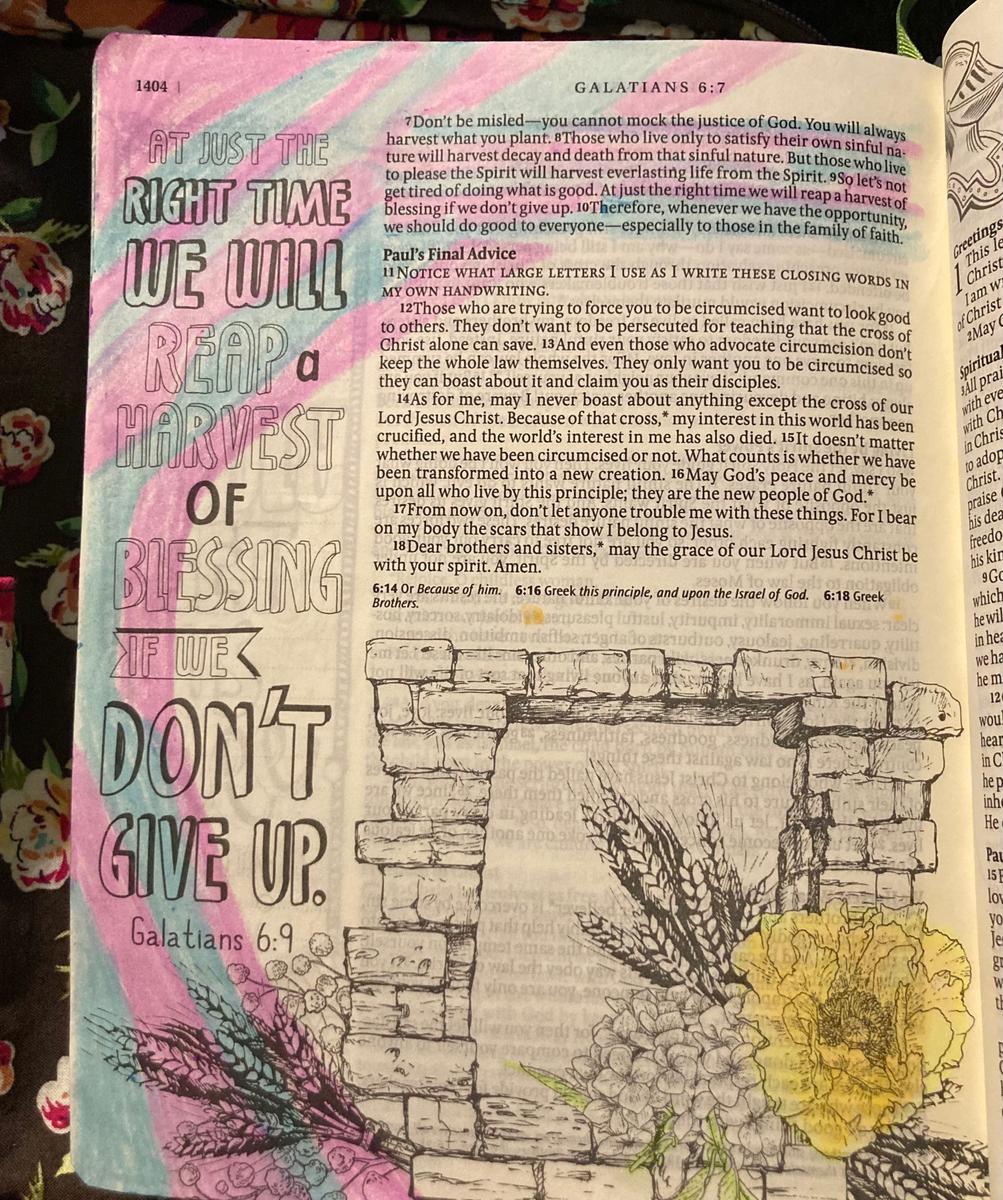 1404 |
GALATIANS 6:7
AT JUST THE
RIGHT TIME
WE WILL
REAP a
HARVEST
OF
BLESSING
IF WE
DON'T
GIVE UP.
Galatians 6:9
7Don't be misled—you cannot mock the justice of God. You will always
harvest what you plant. 8Those who live only to satisfy their own sinful na-
ture will harvest decay and death from that sinful nature. But those who live
to please the Spirit will harvest everlasting life from the Spirit. 9So let's not
get tired of doing what is good. At just the right time we will reap a harvest of
blessing if we don't give up. 10Therefore, whenever we have the opportunity,
we should do good to everyone—especially to those in the family of faith.
Paul's Final Advice
11NOTICE WHAT LARGE LETTERS I USE AS I WRITE THESE CLOSING WORDS IN
MY OWN HANDWRITING.
12Those who are trying to force you to be circumcised want to look good
to others. They don't want to be persecuted for teaching that the cross of
Christ alone can save. 13And even those who advocate circumcision don't
keep the whole law themselves. They only want you to be circumcised so
they can boast about it and claim you as their disciples.
14As for me, may I never boast about anything except the cross of our
Lord Jesus Christ. Because of that cross,* my interest in this world has been
crucified, and the world's interest in me has also died. 15It doesn't matter
whether we have been circumcised or not. What counts is whether we have
been transformed into a new creation. 16May God's peace and mercy be
upon all who live by this principle; they are the new people of God.*
17From now on, don't let anyone trouble me with these things. For I bear
on my body the scars that show I belong to Jesus.
18Dear brothers and sisters,* may the grace of our Lord Jesus Christ be
with your spirit. Amen.
6:14 Or Because of him. 6:16 Greek this principle, and upon the Israel of God. 6:18 Greek
Brothers.
Greetings
1 This le
Christ
I am w
of Christ
2May G
Spiritual
3All prai
with eve
with Ch
in Chris
to adop
Christ.
praise
his dea
freedo
his kin
9Go
which
he wil
in hea
we ha
he m